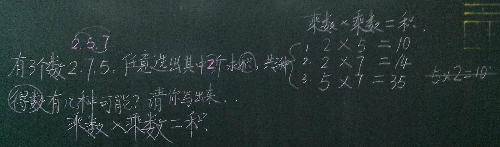 2.5.7
有3个数2.7.5,任意选出其中2个求积,共
得数有几种可能?请你写出来..
乘数×乘数=积.
乘数×乘数=积.
1. 2×5=10
2. 2×7=14
3. 5×7=35
5×2=10